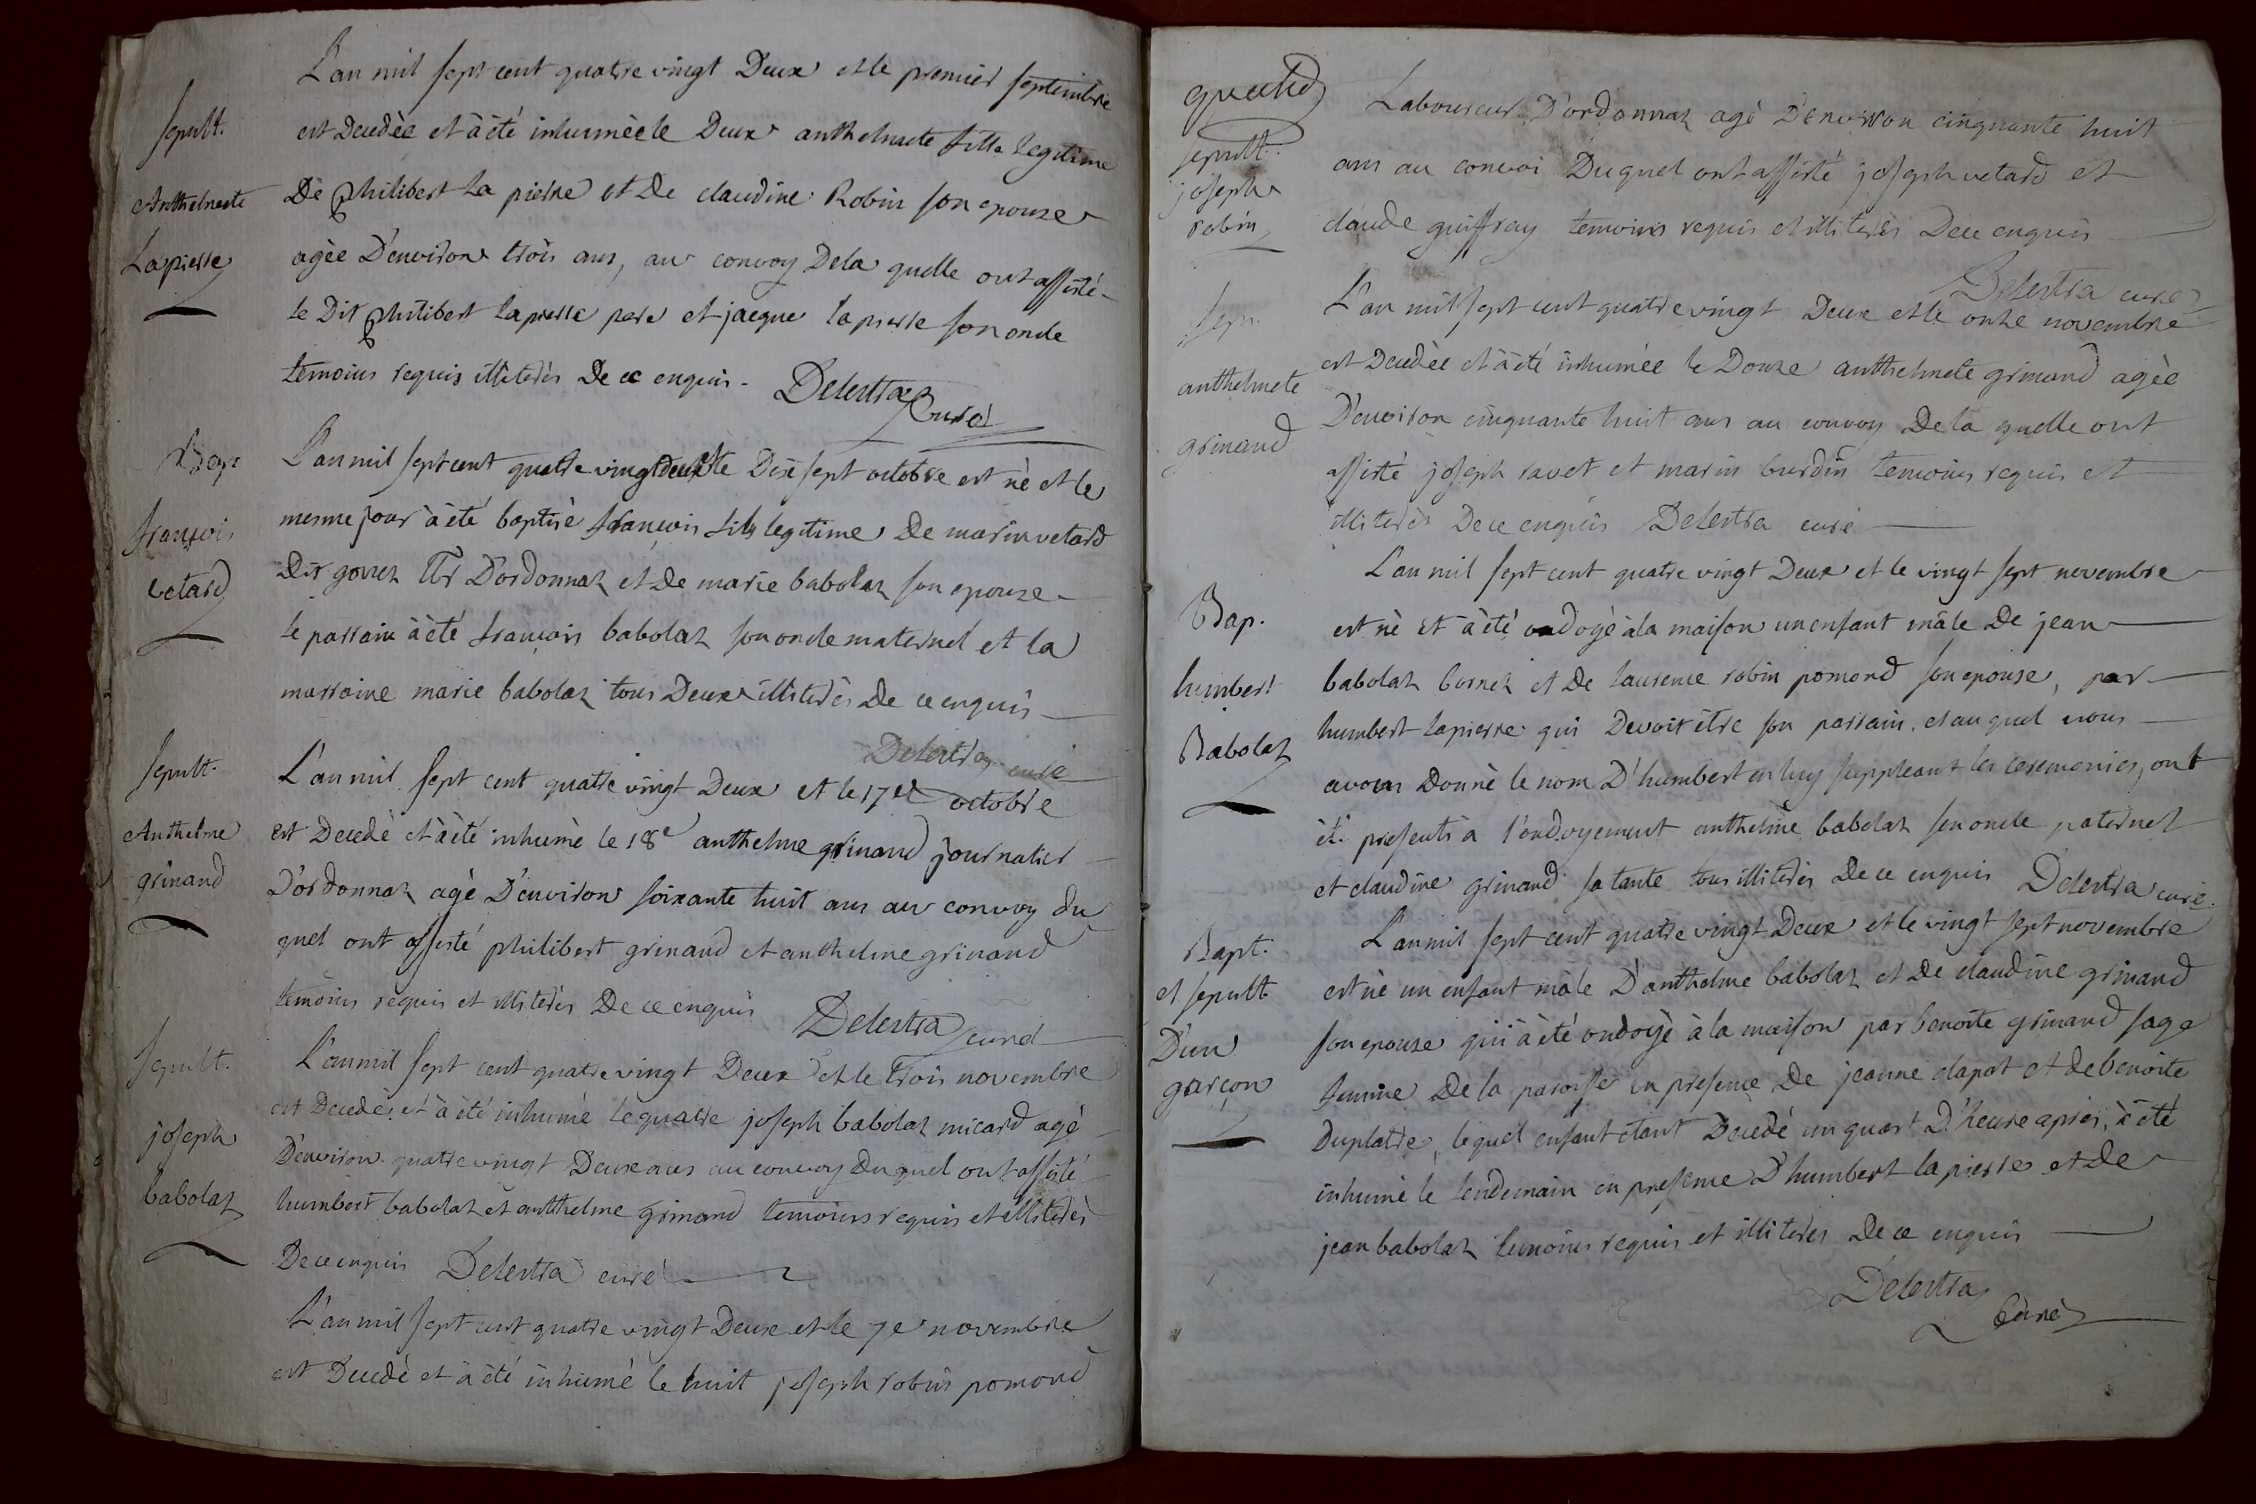 L'an mil sept cent quatre vingt Deux et le premier septembre
sepult.
est Decedèe et à èté inhumèe le Deux anthelmete fille legitime
Anthelmete
De philibert La pierre et De claudine Robin son epouze
Lapierre
agèe D'environ trois ans, au convoy Dela quelle ont assisté
le Dit philibert lapierre pere et jacque lapierre son oncle
temoins requis illiterès De ce enquis - Delestra
Curé
Bap.
L'an mil sept cent quatre vingt deux le Dix sept octobre est nè et le
mesme jour à èté baptisè françois fils legitime De marin vetard
françois
vetard
Dit gonet Dordonnaz et De marie babolaz son epouze
le parrain à èté françois babolaz son oncle maternel et la
marraine marie babolaz tous Deux illiterès De ce enquis
Delestra curé
sepult.
L'an mil sept cent quatre vingt Deux et le 17e octobre
Anthelme
est Decedè et à èté inhumè le 18e anthelme grinand journalier
grinand
D'ordonnaz agè D'environ soixante huit ans au convoy du
quel ont assisté philibert grinand et anthelme grinand
temoins requis et illiterès De ce enquis Delestra curé
sepult.
L'an mil sept cent quatre vingt Deux et le trois novembre
est Decedè et à èté inhumè le quatre joseph babolaz micard agé
joseph
D'environ quatre vingt Deux ans au convoy duquel ont assisté
babolaz
humbert babolaz et anthelme grinand temoins requis et illiterès
De ce enquis Delestra curé
L'an mil sept cent quatre vingt Deux et le 7e novembre
est Decedè et à èté inhumé le huit joseph robin pomond
sepult.
joseph
robin
Laboureur D'ordonnaz agè D'environ cinquante huit
ans au convoi Duquel ont assisté joseph vetard et
claude guiffray temoins requis et illiterès De ce enquis
Delestra curé
sep.
L'an mil sept cent quatre vingt Deux et le onze novembre
est Decedèe et à èté inhumée le Douze anthelmete grinand agèe
anthelmete
grinand
D'environ cinquante huit ans au convoy De la quelle ont
assisté joseph ravet et marin burdin temoins requis et
illiterès De ce enquis Delestra curé
L'an mil sept cent quatre vingt Deux et le vingt sept novembre
Bap.
est nè et à èté ondoyé à la maison un enfant mâle De jean
humbert
babolaz bornet et De laurence robin pomond son epouse, par
Babolaz
humbert lapierre qui Devoit être son parrain, et au quel nous
avons Donnè le nom D'humbert en luy suppleant les ceremonies, ont
èté presents a l'ondoyement anthelme babolaz son oncle paternel
et claudine grinand sa tante tous illiterès De ce enquis Delestra curé.
Bapt.
et sepult
D'un
garçon
L'an mil sept cent quatre vingt Deux et le vingt sept novembre
est nè un enfant mâle D'anthelme babolaz et De claudine grinand
son epouze qui à èté ondoyè à la maison par benoite grinand sage
femme De la paroisse en presence De jeanne clapot et de benoite
Duplatre, lequel enfant etant Decedé un quart D'heure apres, à èté
inhumè le lendemain en presence D'humbert lapierre et De
jean babolaz temoins requis et illiterès De ce enquis
Delestra
Curè